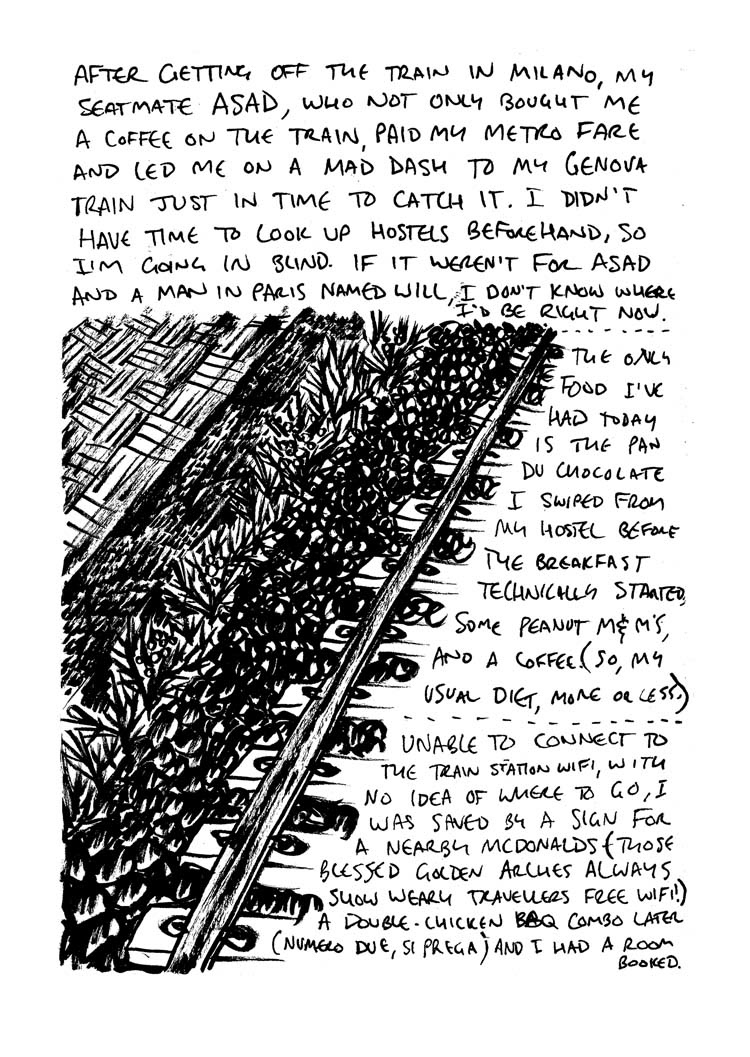 AFTER GETTING OFF THE TRAIN IN MILANO, MY
SEATMATE ASAD, WHO NOT ONLY BOUGHT ME
A COFFEE ON THE TRAIN, PAID MY METRO FARE
AND LED ME ON A MAD DASH TO MY GENOVA
TRAIN JUST IN TIME TO CATCH IT. I DIDN'T
HAVE TIME TO LOOK UP HOSTELS BEFOREHAND, SO
I'M GOING IN BLIND. IF IT WEREN'T FOR ASAD
AND A MAN IN PARIS NAMED WILL, I DON'T KNOW WHERE
I'D BE RIGHT NOW.
THE ONLY
FOOD I'VE
HAD TODAY
IS THE PAN
DU CHOCOLATE
I SWIPED FROM
MY HOSTEL BEFORE
THE BREAKFAST
TECHNICALLY STARTED,
SOME PEANUT M&M'S,
AND A COFFEE. (SO, MY
USUAL DIET, MORE OR LESS.)
UNABLE TO CONNECT TO
THE TRAIN STATION WIFI, WITH
NO IDEA OF WHERE TO GO, I
WAS SAVED BY A SIGN FOR
A NEARBY MCDONALDS (THOSE
BLESSED GOLDEN ARCHES ALWAYS
SHOW WEARY TRAVELLERS FREE WIFI!)
A DOUBLE-CHICKEN BBQ COMBO LATER
(NUMERO DUE, SI PREGA) AND I HAD A ROOM
BOOKED.